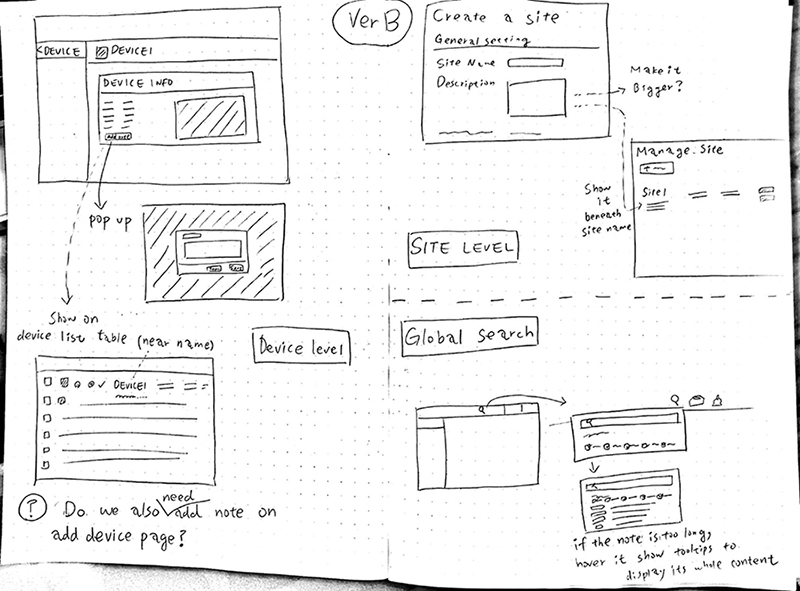 Ver B
<DEVICE
DEVICE1
DEVICE INFO
Add note
pop up
Show on
device list table (near name)
Device level
DEVICE1
? Do we also need add note on
add device page?
Create a site
General setting
Site Name
Description
Make it
Bigger?
Manage Site
+
Site1
Show
it
beneath
site name
SITE LEVEL
Global search
if the note is too long,
hover it show tooltips to
display its whole content